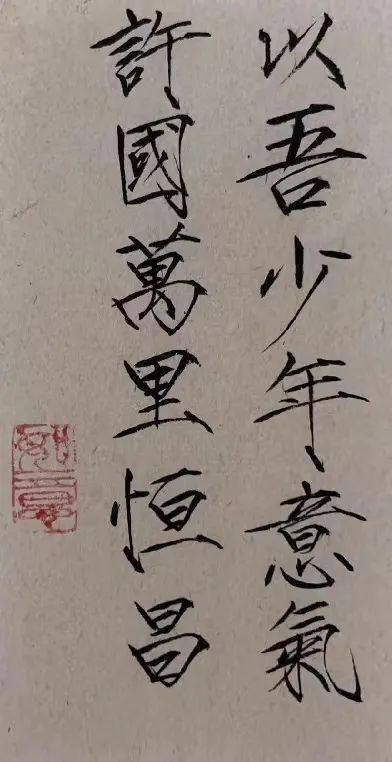 以吾少年意氣
許國萬里恒昌